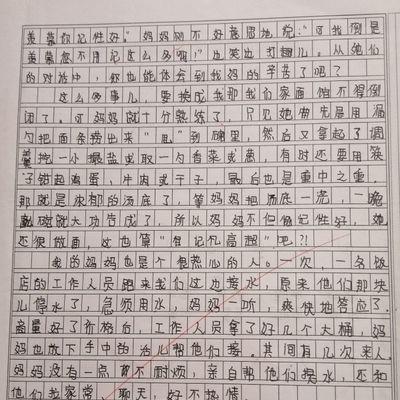 羡慕你记性好"妈妈则不好意思地说:"可我倒是
羡慕您不用记这么多啊!"边笑边打趣儿。从她们
的对话中,你也能体会到我妈的辛苦了吧?
这么多事儿,要换成我那我们家面馆不得倒
闭了。可妈妈就十分熟练了,只见她先是用漏
勺把面条捞出来"甩"到碗里,然后又拿起了调
羹挖一小撮盐或取一勺香菜或葱,有时还要用筷
子钳起鸡蛋、牛肉或干子。最后也是重中之重,
那就是浓郁的汤底了,等妈妈把汤底一浇,一晚
就大功告成了,所以妈妈不但做记性好,她
还很做面,这也算"登记忆高超"吧?!
我的妈妈也是个很热心的人。一次,一名饭
店的工作人员跑来我们这边接水,原来他们那块
儿停水了,急须用水,妈妈一听,爽快地答应了。
商量好了价格后,工作人员拿了好几个大桶,妈
妈也放下手中的活儿帮他们接。其间有几次来人,
妈妈没有一点不耐烦,亲自帮他们提水,还和
他们我家常,聊天,好不热情。